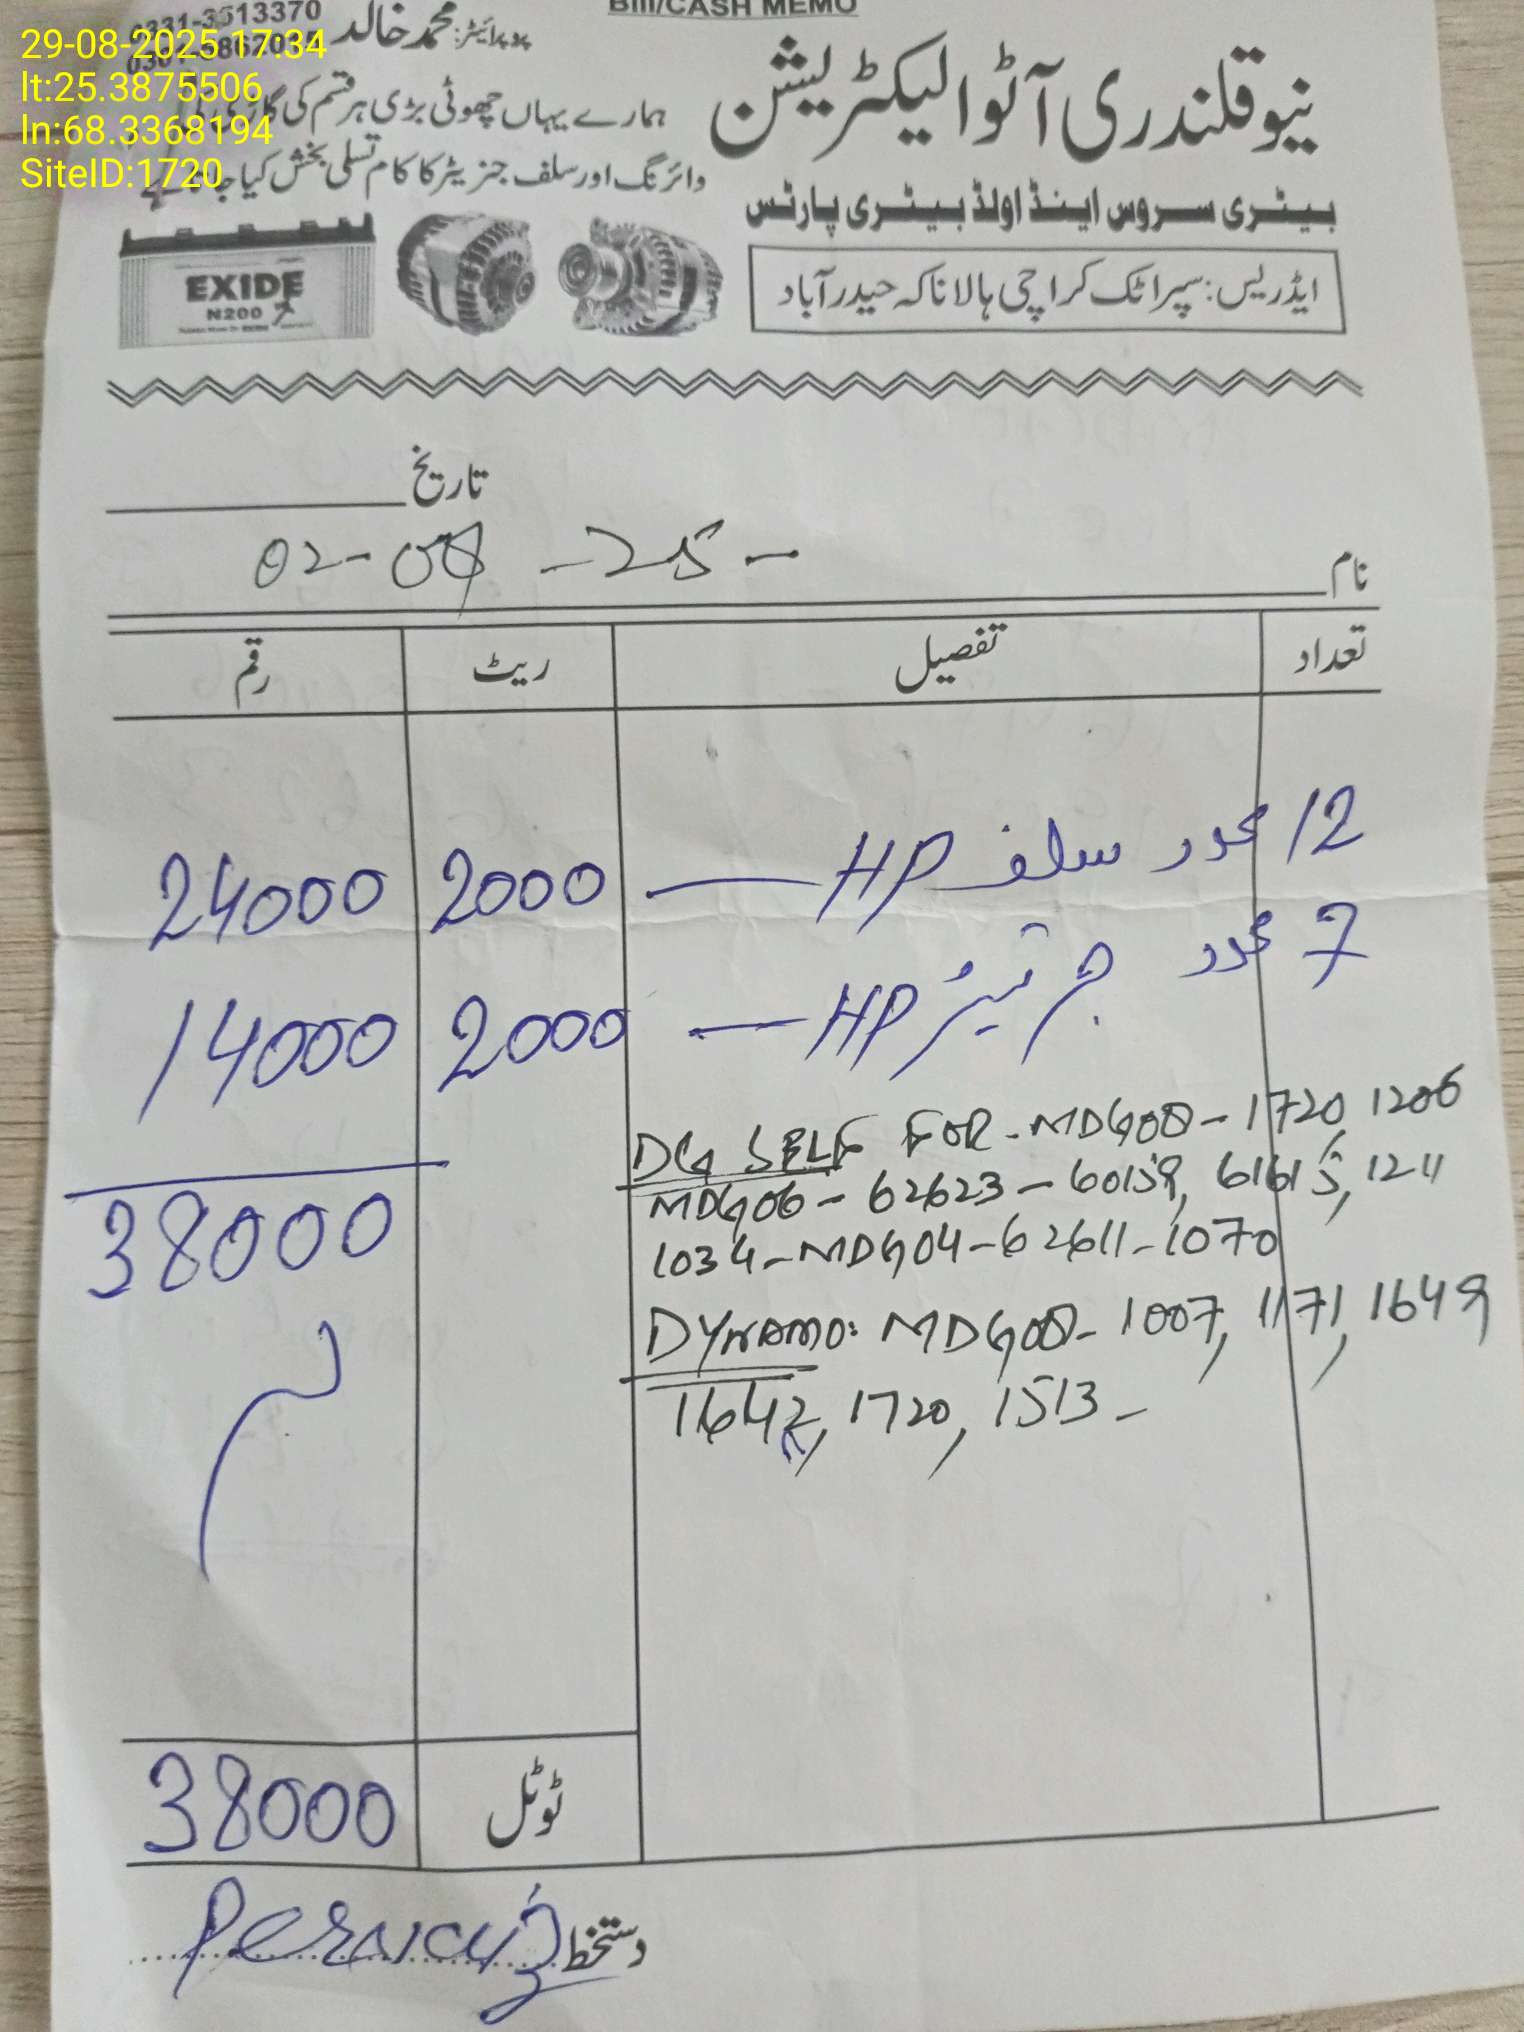 Bill/CASH MEMO
0331-3513370
پروپرائیٹر: محمد خالد
29-08-2025 17:34
lt:25.3875506
ln:68.3368194
SiteID:1720
نیو قلندری آٹو الیکٹریشن
ہمارے یہاں چھوٹی بڑی ہر قسم کی گاڑی کی
وائرنگ اور سلف جنریٹر کا کام تسلی بخش کیا جاتا ہے
بیٹری سروس اینڈ اولڈ بیٹری پارٹس
ایڈریس: سپرا ٹک کراچی ہالا ناکہ حیدرآباد
EXIDE
N200
تاریخ
02- -25-
نام
تعداد تفصیل ریٹ رقم
12 عدد سلف HP — 2000 24000
7 عدد جرنیٹر HP — 2000 14000
38000
DG SELF FOR - MDG08 - 1720, 1206
MDG06 - 62623 - 60159, 61615, 1211
1034 - MDG04 - 62611 - 1070
DYNAMO: MDG08 - 1007, 1171, 1649
1642, 1720, 1513 -
ٹوٹل 38000
دستخط